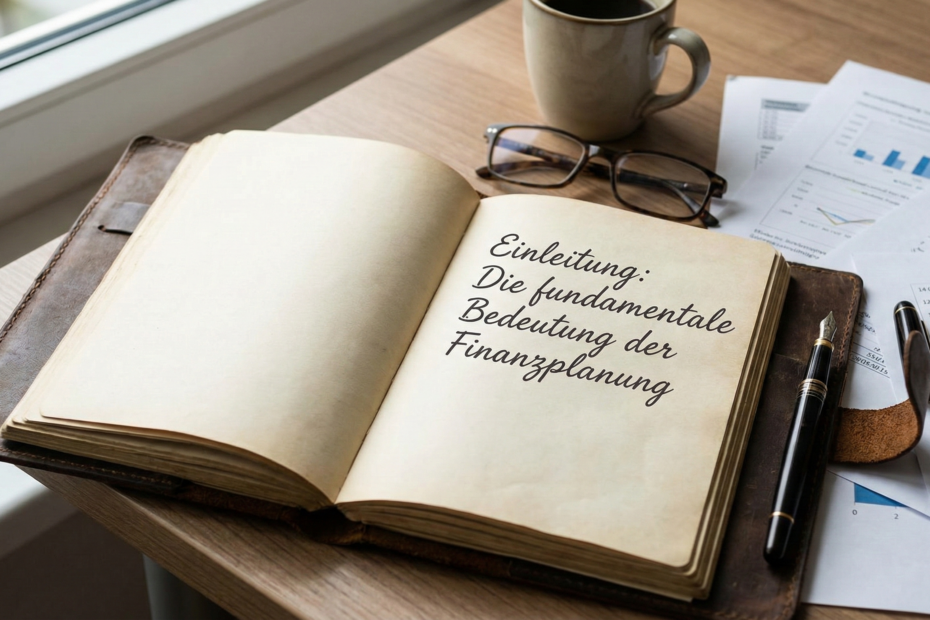 Einleitung:
Die fundamentale
Bedeutung der
Finanzplanung
0 2